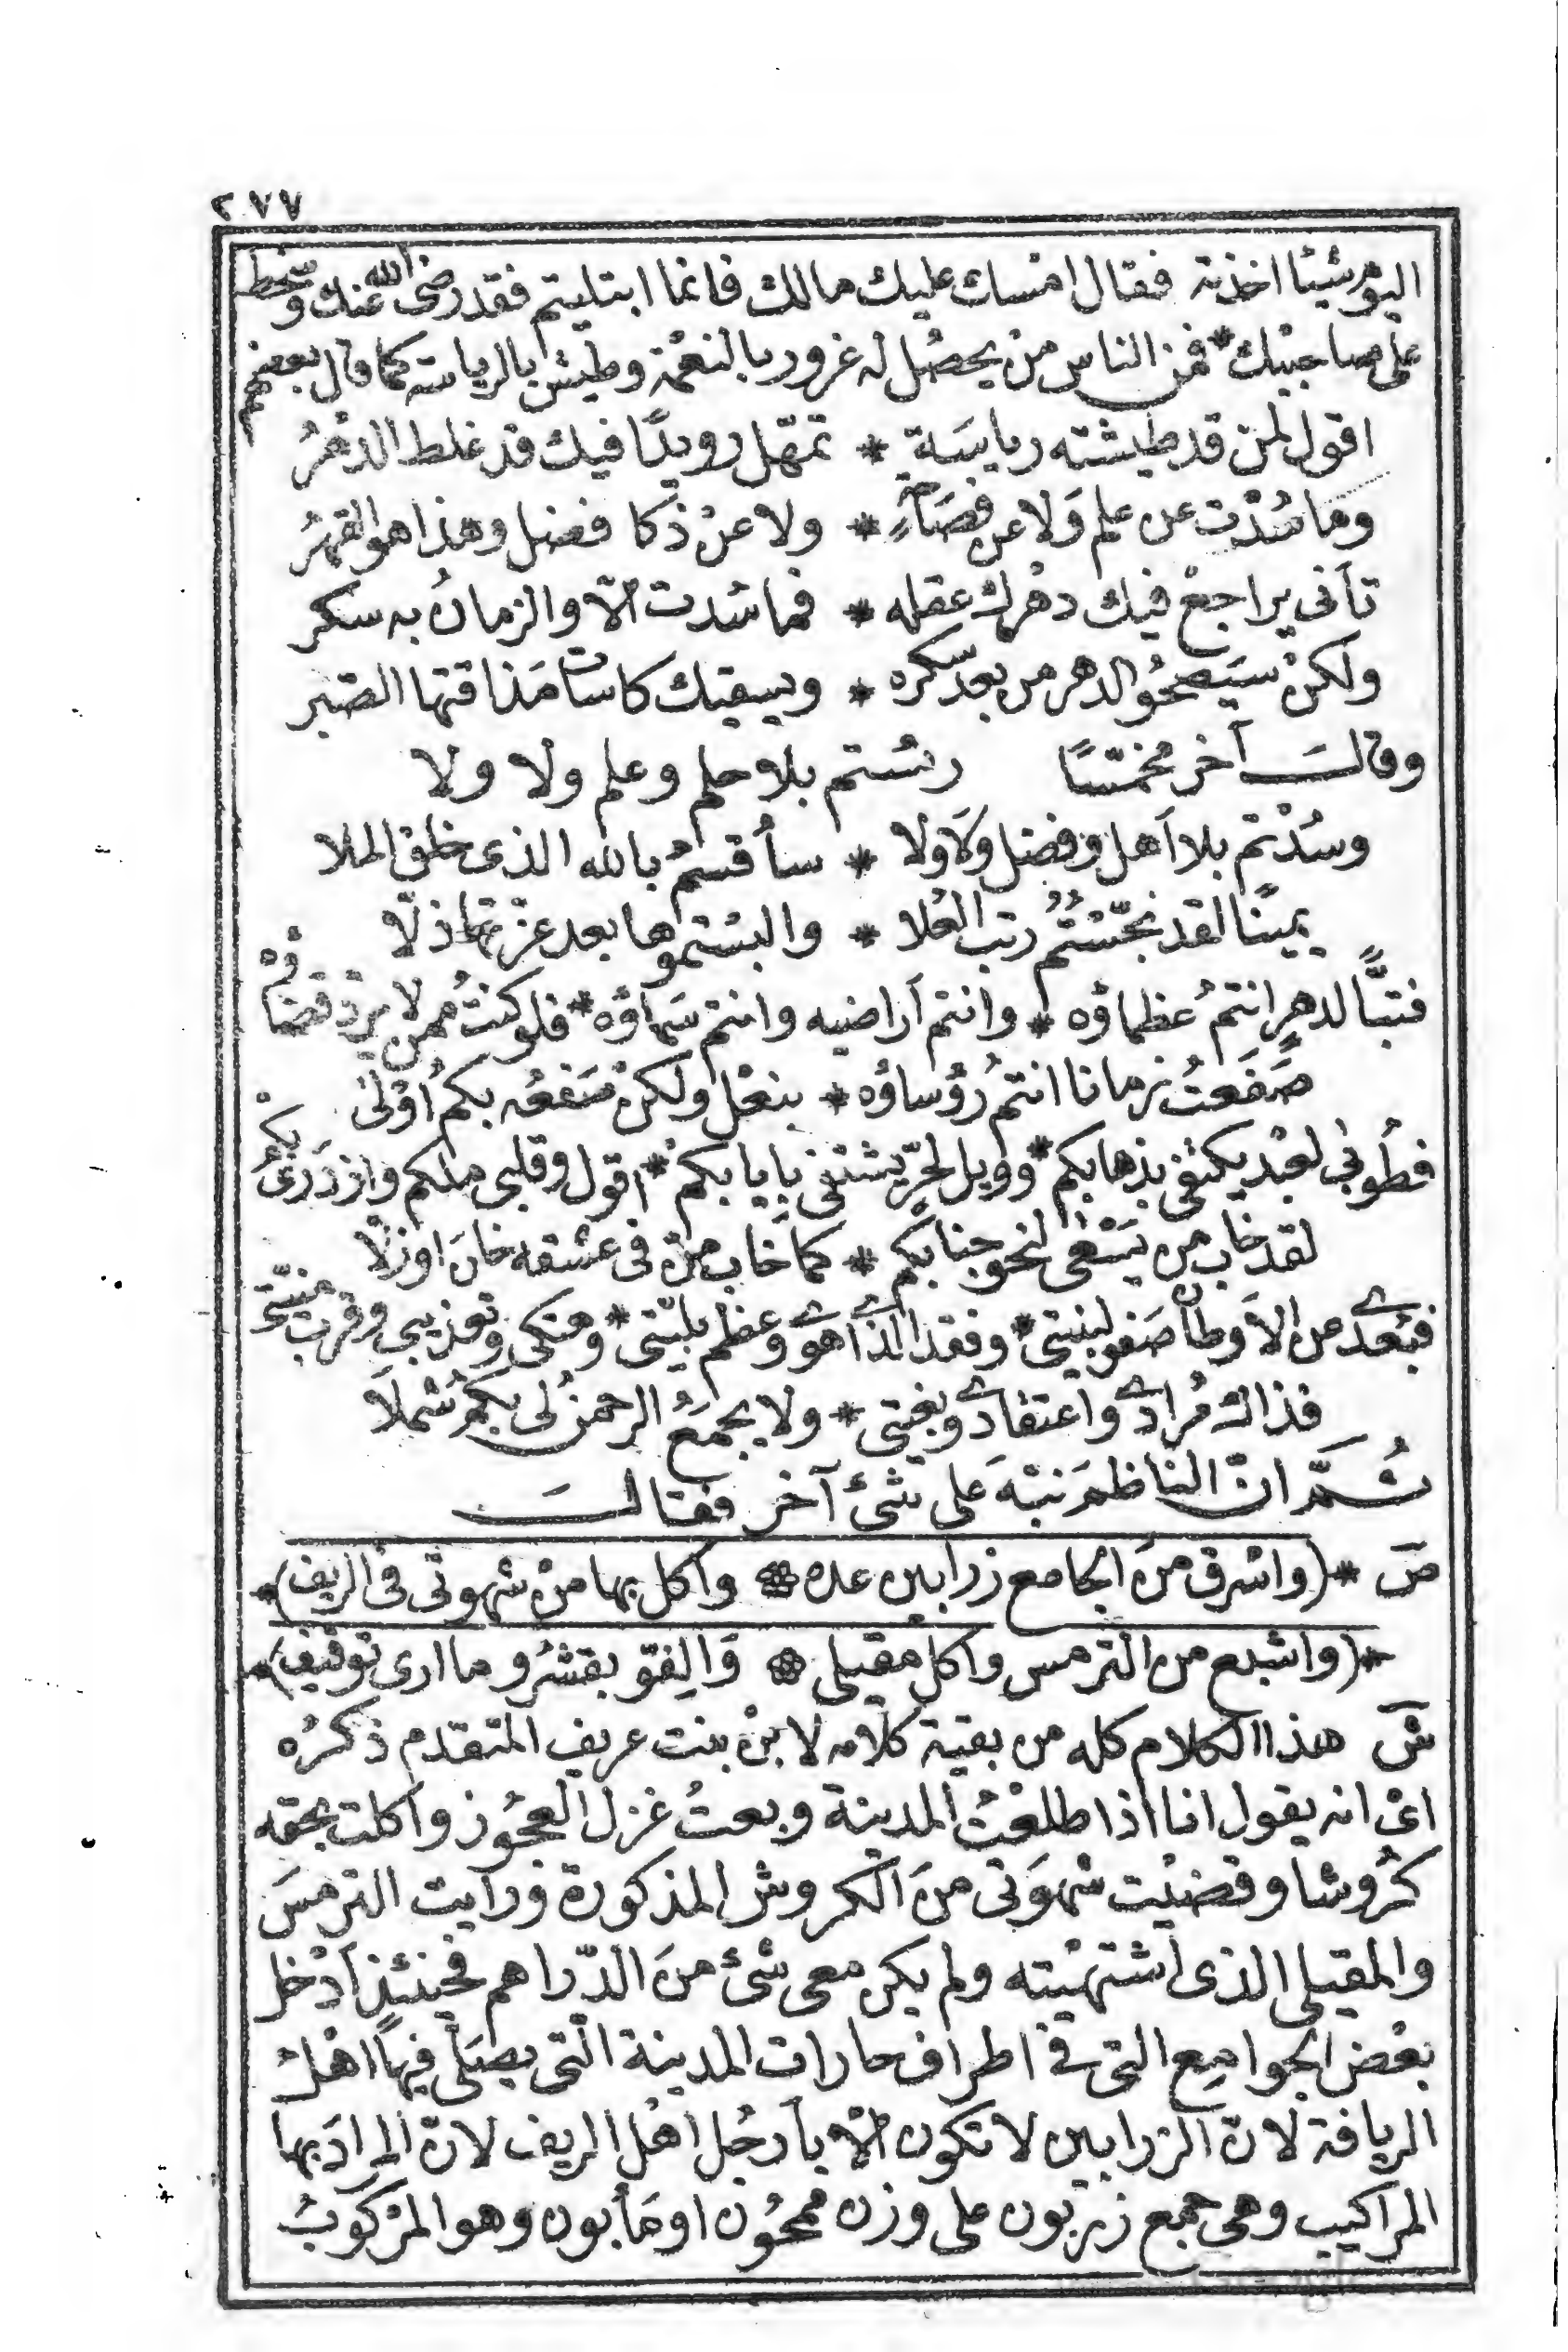 ٢٧٧
اليوم شيئا اخذته فقال امسك عليك مالك فانما ابتليتم فقد رضى الله عنك وسخط
على صاحبيْك * فمن الناس من يحصُل له غرور بالنعمة وطيش بالرياسة كما قال بعضهم
اقول لمن قد طيشته رياسَة * تمهّل رويدًا فيك قد غلط الدهرُ
وما سُدْت عن علم وَلا عن فصَاحةٍ * ولا عنْ ذكا فضل وهذا هو القهرُ
تأنى يراجعْ فيك دهرك عقله * فما سُدت الّا والزمانُ به سكر
ولكنْ سيَصحُو الدهر من بعد سكره * ويسقيك كاسات مَذاقتها الصّبر
وقالَ آخر مُخمّسًا رئستم بلا حلم وعلم ولا ولا
وسُدْتم بلا اَهل وفضل وَلَا ولا * سأُقسمُ بالله الذى خلق الملا
يمينًا لقد نجّسْتُمُ رتب العُلا * والبستموها بعد عزّتها ذلّا
فتبًّا لدهرٍ انتمُ عظماؤه * وانتم اَراضيه وانتم سَماؤه * فلو كنتُ ممن لا يردّ قضاؤهْ
صَفَعتُ زمانا انتمُ رُؤساؤه * بنعْل ولكنْ صَفعُه بكمُ اَوْلى
فطُوبى لعبْد يكتفى بذهابكم * وويل لحرّ يشتفى بإيابكم * اقول وقلبى ملكم وازدَرَىْ بكمْ
لقد خاب من يَسْعى لنحو جنابكم * كما خاب منْ فى عشقه خانَ او زلّا
فبُعدى من الاَوطان صَفو لبنيتى * وفقد الذى اهوى وعظم بليّتى * وهتكى وتعذيبى وقرب منيّتى
فذاك مُرادى واعتقادى وبغيتى * ولا يجمَعُ الرحمنُ لى بكمُ شملَا
ثُمّ انّ الناظمَ نبّهَ على شئ آخر فقالَ
صَ * (واسْرق منَ الجامع زرابين عده ۞ وآكل بها منْ شهوتى فى الريف) *
* (واشبع من الترمس وآكل مقيلى ۞ وَالِفّو بقشرُو ما ارى توقيف) *
شَ هذا الكلام كله من بقية كلامه لابنْ بنت عريف المتقدم ذكرُه
اىْ انه يقول انا اذا طلعْتُ المدينة وبعتُ غزل العجُوز واكلت بحقه
كُرُوشا وقضيْت شهوَتى منَ الكروش المذكورة ورايت الترمسَ
والمقيلى الذى اشتهيْته ولم يكن معى شئ منَ الدّراهم فحينئذ اَدْخل
بعْض الجوامِع التى فى اطراف حارات المدينة الّتى يصَلّى فيها اهْلُ
الريافة لانّ الزرابين لا تكون الّا بأرجُل اهْل الريف لانّ المرادَ بها
المراكيب وهى جمع زربون على وزن مجحُون او صَابون وهو المرْكوبُ